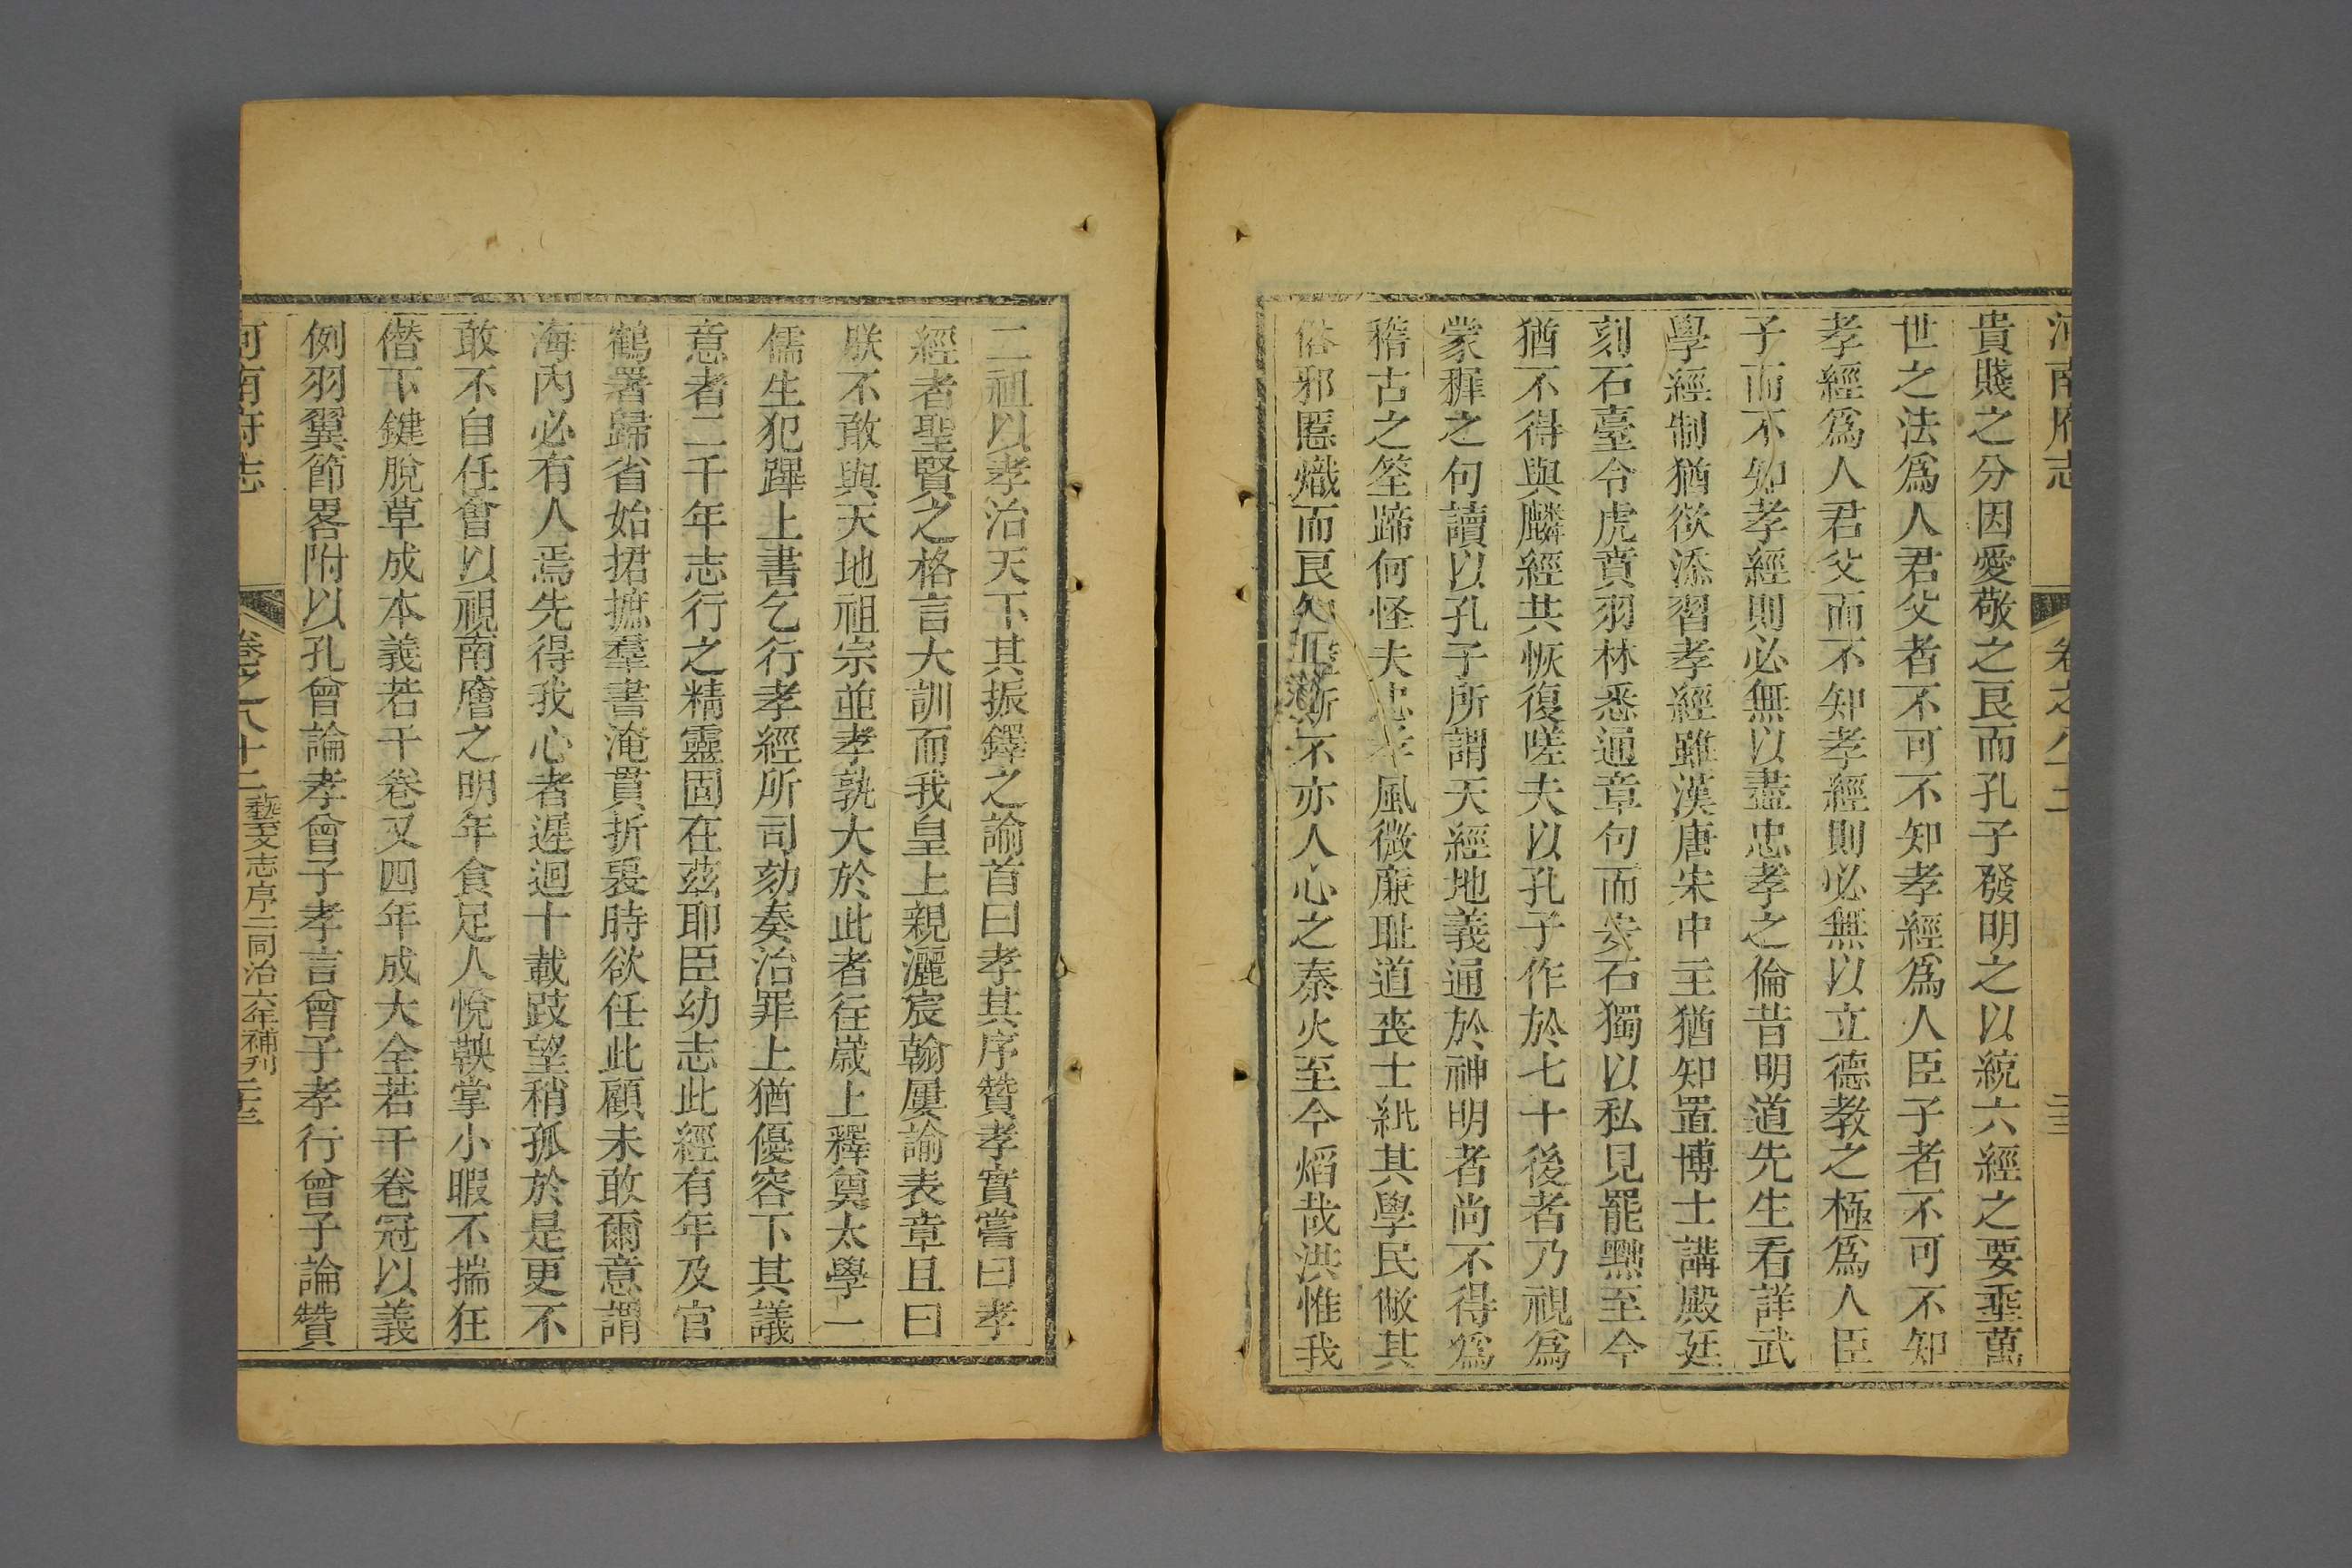 河南府志 卷之八十二
貴賤之分因愛敬之良而孔子發明之以統六經之要垂萬
世之法爲人君父者不可不知孝經爲人臣子者不可不知
孝經爲人君父而不知孝經則必無以立德教之極爲人臣
子而不知孝經則必無以盡忠孝之倫昔明道先生看詳武
學經制猶欲添習孝經雖漢唐宋中主猶知置博士講殿廷
刻石臺令虎賁羽林悉通章句而安石獨以私見罷黜至今
猶不得與麟經共恢復嗟夫以孔子作於七十後者乃視爲
蒙穉之句讀以孔子所謂天經地義通於神明者尚不得爲
稽古之筌蹄何怪夫忠孝風微廉耻道喪士紕其學民僘其
俗邪慝熾而良久斯不亦人心之秦火至今熖哉洪惟我
二祖以孝治天下其振鐸之諭首曰孝其序贊孝實嘗曰孝
經者聖賢之格言大訓而我皇上親灑宸翰屢諭表章且曰
朕不敢與天地祖宗並孝孰大於此者往嵗上釋奠太學一
儒生犯蹕上書乞行孝經所司劾奏治罪上猶優容下其議
意者二千年志行之精靈固在茲耶臣幼志此經有年及官
鶴署歸省始捃摭羣書淹貫折衷時欲任此顧未敢爾意謂
海內必有人焉先得我心者遲迴十載跂望稍孤於是更不
敢不自任會以視南廱之明年食足人悅鞅掌小暇不揣狂
僭下鍵脫草成本義若干卷又四年成大全若干卷冠以義
例羽翼節畧附以孔曾論孝曾子孝言曾子孝行曾子論贊
河南府志 卷之八十二 藝文志序二同治六年補刋 二十三